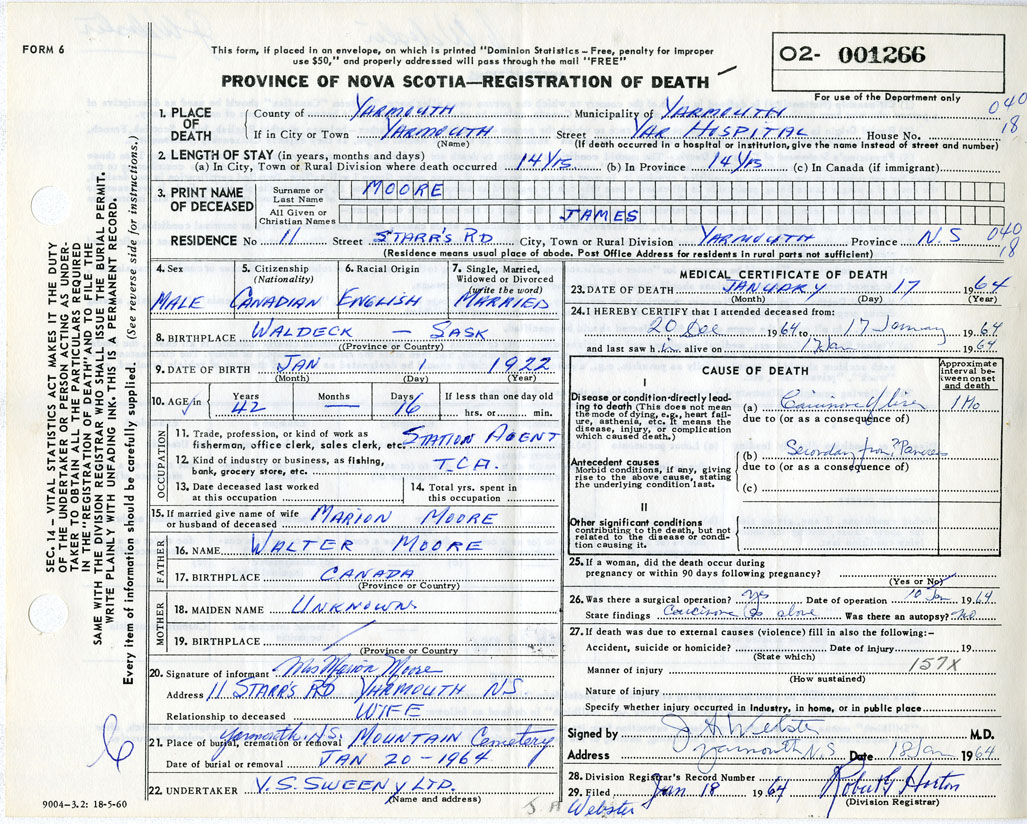 FORM 6
This form, if placed in an envelope, on which is printed "Dominion Statistics – Free, penalty for improper
use $50," and properly addressed will pass through the mail "FREE"
PROVINCE OF NOVA SCOTIA—REGISTRATION OF DEATH
O2- 001266
For use of the Department only
SEC. 14 – VITAL STATISTICS ACT MAKES IT THE DUTY
OF THE UNDERTAKER OR PERSON ACTING AS UNDER-
TAKER TO OBTAIN ALL THE PARTICULARS REQUIRED
IN THE "REGISTRATION OF DEATH" AND TO FILE THE
SAME WITH THE DIVISION REGISTRAR WHO SHALL ISSUE THE BURIAL PERMIT.
WRITE PLAINLY WITH UNFADING INK. THIS IS A PERMANENT RECORD.
Every item of information should be carefully supplied. (See reverse side for instructions.)
1. PLACE OF DEATH
County of YARMOUTH Municipality of YARMOUTH 040
If in City or Town YARMOUTH Street YAR HOSPITAL House No. 18
(Name) (If death occurred in a hospital or institution, give the name instead of street and number)
2. LENGTH OF STAY (in years, months and days)
(a) In City, Town or Rural Division where death occurred 14 Yrs (b) In Province 14 Yrs (c) In Canada (if immigrant)
3. PRINT NAME OF DECEASED
Surname or Last Name MOORE
All Given or Christian Names JAMES
RESIDENCE No 11 Street STARR'S RD City, Town or Rural Division YARMOUTH Province N.S 040
18
(Residence means usual place of abode. Post Office Address for residents in rural parts not sufficient)
4. Sex MALE
5. Citizenship (Nationality) CANADIAN
6. Racial Origin ENGLISH
7. Single, Married, Widowed or Divorced (write the word) MARRIED
8. BIRTHPLACE WALDECK – SASK
(Province or Country)
9. DATE OF BIRTH JAN 1 1922
(Month) (Day) (Year)
10. AGE in Years 42 Months — Days 16 If less than one day old hrs. or min.
OCCUPATION
11. Trade, profession, or kind of work as fisherman, office clerk, sales clerk, etc. STATION AGENT
12. Kind of industry or business, as fishing, bank, grocery store, etc. T.C.A.
13. Date deceased last worked at this occupation
14. Total yrs. spent in this occupation
15. If married give name of wife or husband of deceased MARION MOORE
FATHER
16. NAME WALTER MOORE
17. BIRTHPLACE CANADA
(Province or Country)
MOTHER
18. MAIDEN NAME UNKNOWN
19. BIRTHPLACE
(Province or Country
20. Signature of informant Mrs Marion Moore
Address 11 STARR'S RD YARMOUTH NS
Relationship to deceased WIFE
21. Place of burial, cremation or removal Yarmouth, N.S. MOUNTAIN Cemetery
Date of burial or removal JAN 20 - 1964
22. UNDERTAKER V.S. SWEENY LTD.
(Name and address)
9004–3.2: 18-5-60
MEDICAL CERTIFICATE OF DEATH
23. DATE OF DEATH JANUARY 17 1964
(Month) (Day) (Year)
24. I HEREBY CERTIFY that I attended deceased from:
20 Dec 1964 to 17 January 1964
and last saw him alive on 17 Jan 1964
CAUSE OF DEATH
Approximate interval between onset and death
I
Disease or condition directly leading to death (This does not mean the mode of dying, e.g., heart failure, asthenia, etc. It means the disease, injury, or complication which caused death.)
(a) Carcinoma of liver 1 Mo
due to (or as a consequence of)
Antecedent causes
Morbid conditions, if any, giving rise to the above cause, stating the underlying condition last.
(b) Secondary from ? Pancreas
due to (or as a consequence of)
(c)
II
Other significant conditions
contributing to the death, but not related to the disease or condition causing it.
25. If a woman, did the death occur during
pregnancy or within 90 days following pregnancy?
(Yes or No)
26. Was there a surgical operation? yes Date of operation 10 Jan 1964
State findings Carcinoma as above Was there an autopsy? no
27. If death was due to external causes (violence) fill in also the following:–
Accident, suicide or homicide? Date of injury 19
(State which)
157X
Manner of injury
(How sustained)
Nature of injury
Specify whether injury occurred in industry, in home, or in public place
Signed by J A Webster M.D.
Address Yarmouth N.S. Date 18 Jan 1964
28. Division Registrar's Record Number
29. Filed Jan 18 1964 Robert G Horton
(Division Registrar)
J. A Webster